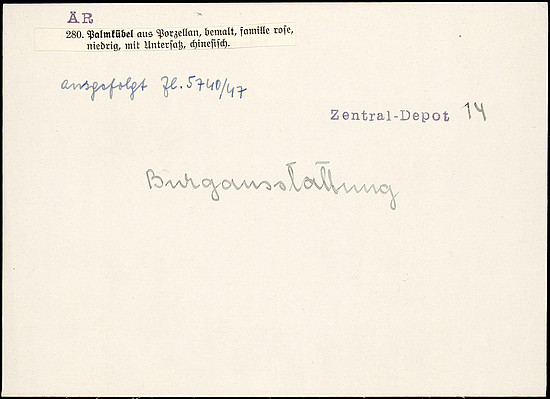 ÄR
280. Palmkübel aus Porzellan, bemalt, famille rose,
niedrig, mit Untersatz, chinesisch.
ausgefolgt Zl. 5740/47
Zentral-Depot 14
Burgausstattung